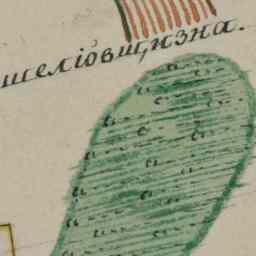 шеліовщизна.